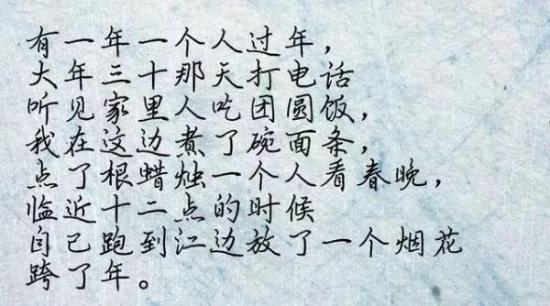 有一年一个人过年，
大年三十那天打电话
听见家里人吃团圆饭，
我在这边煮了碗面条，
点了根蜡烛一个人看春晚，
临近十二点的时候
自己跑到江边放了一个烟花
跨了年。